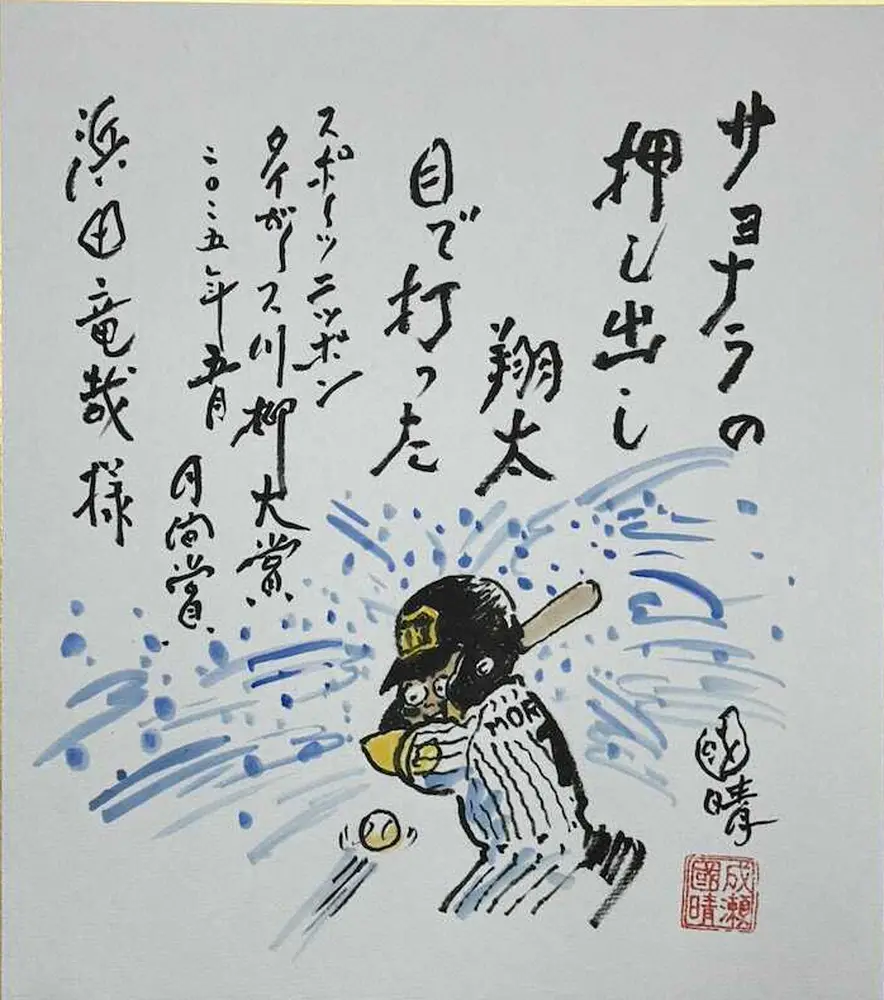 サヨナラの
押し出し
翔太
目で打った
スポーツニッポン
タイガース川柳大賞
二〇二五年五月
月間賞
浜田竜哉様
MOR
國晴
成瀬
國晴